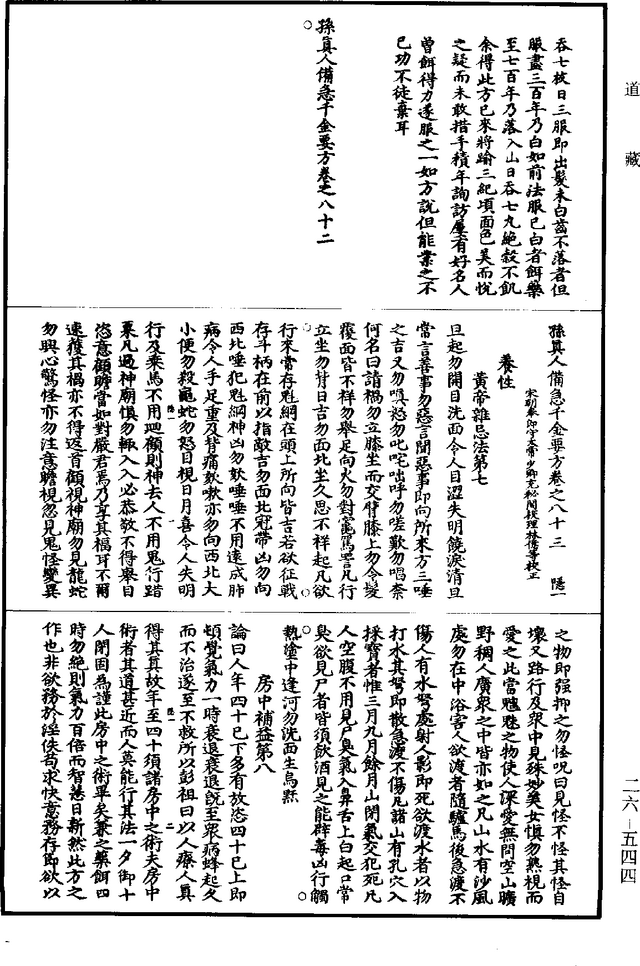 道藏
吞七枚日三服即出髮未白齒不落者但
服盡三百年乃白如前法服已白者餌藥
至七百年乃落入山日吞七丸絕穀不飢
余得此方已來將踰三紀頃面色美而悅
之疑而未敢措手積年詢訪屢有好名人
曾餌得力遂服之一如方說但能業之不
已功不徒棄耳
孫真人備急千金要方卷之八十二
孫真人備急千金要方卷之八十三 隱一
宋朝奉郎守太常少卿充秘閣校理林億等校正
養性
黃帝雜忌法第七
旦起勿開目洗面令人目澀失明饒淚清旦
常言善事勿惡言聞惡事即向所來方三唾
之吉又勿嗔怒勿叱咤咄呼勿嗟歎勿唱奈
何名曰請禍勿立膝坐而交臂膝上勿令髮
覆面皆不祥勿舉足向火勿對竈罵詈凡行
立坐勿背日吉勿面北坐久思不祥起凡欲
行來常存魁綱在頭上所向皆吉若欲征戰
存斗柄在前以指敵吉勿面北冠帶凶勿向
西北唾犯魁綱神凶勿欬唾唾不用遠成肺
病令人手足重及背痛欬嗽亦勿向西北大
小便勿殺龜蛇勿怒目視日月喜令人失明
行及乘馬不用迴顧則神去人不用鬼行踖
粟凡過神廟慎勿輒入入必恭敬不得舉目
恣意顧瞻當如對嚴君焉乃享其福耳不爾
速獲其禍亦不得返首顧視神廟勿見龍蛇
勿興心驚怪亦勿注意瞻視忽見鬼怪變異
之物即強抑之勿怪呪曰見怪不怪其怪自
壞又路行及眾中見殊妙美女慎勿熟視而
愛之此當魑魅之物使人深愛無問空山曠
野稠人廣眾之中皆亦如之凡山水有沙風
處勿在中浴害人欲渡者隨驢馬後急渡不
傷人有水弩處射人影即死欲渡水者以物
打水其弩即散急渡不傷凡諸山有孔穴入
採寶者惟三月九月餘月山閉氣交犯死凡
人空腹不用見尸臭氣入鼻舌上白起口常
臭欲見尸者皆須飲酒見之能辟毒凶行觸
熱塗中逢河勿洗面生烏䵟
房中補益第八
論曰人年四十已下多有放恣四十已上即
頓覺氣力一時衰退衰退既至眾病蜂起久
而不治遂至不救所以彭祖曰以人療人真
得其真故年至四十須識房中之術夫房中
術者其道甚近而人莫能行其法一夕御十
人閉固為謹此房中之術畢矣兼之藥餌四
時勿絕則氣力百倍而智慧日新然此方之
作也非欲務於淫佚苟求快意務存節欲以
二六－五四四